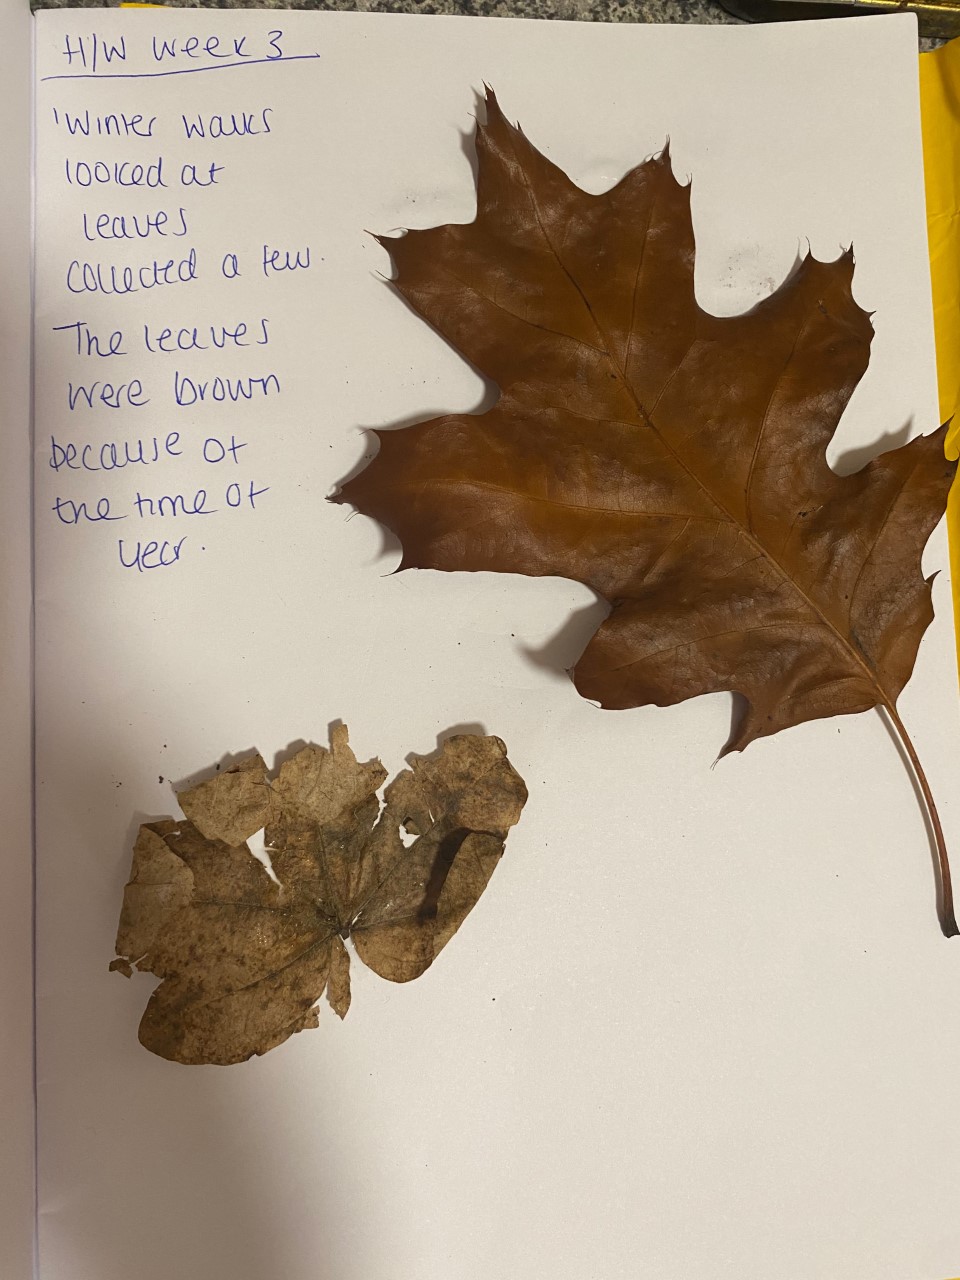 H/W week 3
'Winter walks
looked at
leaves
collected a few.
The leaves
were brown
because of
the time of
year.